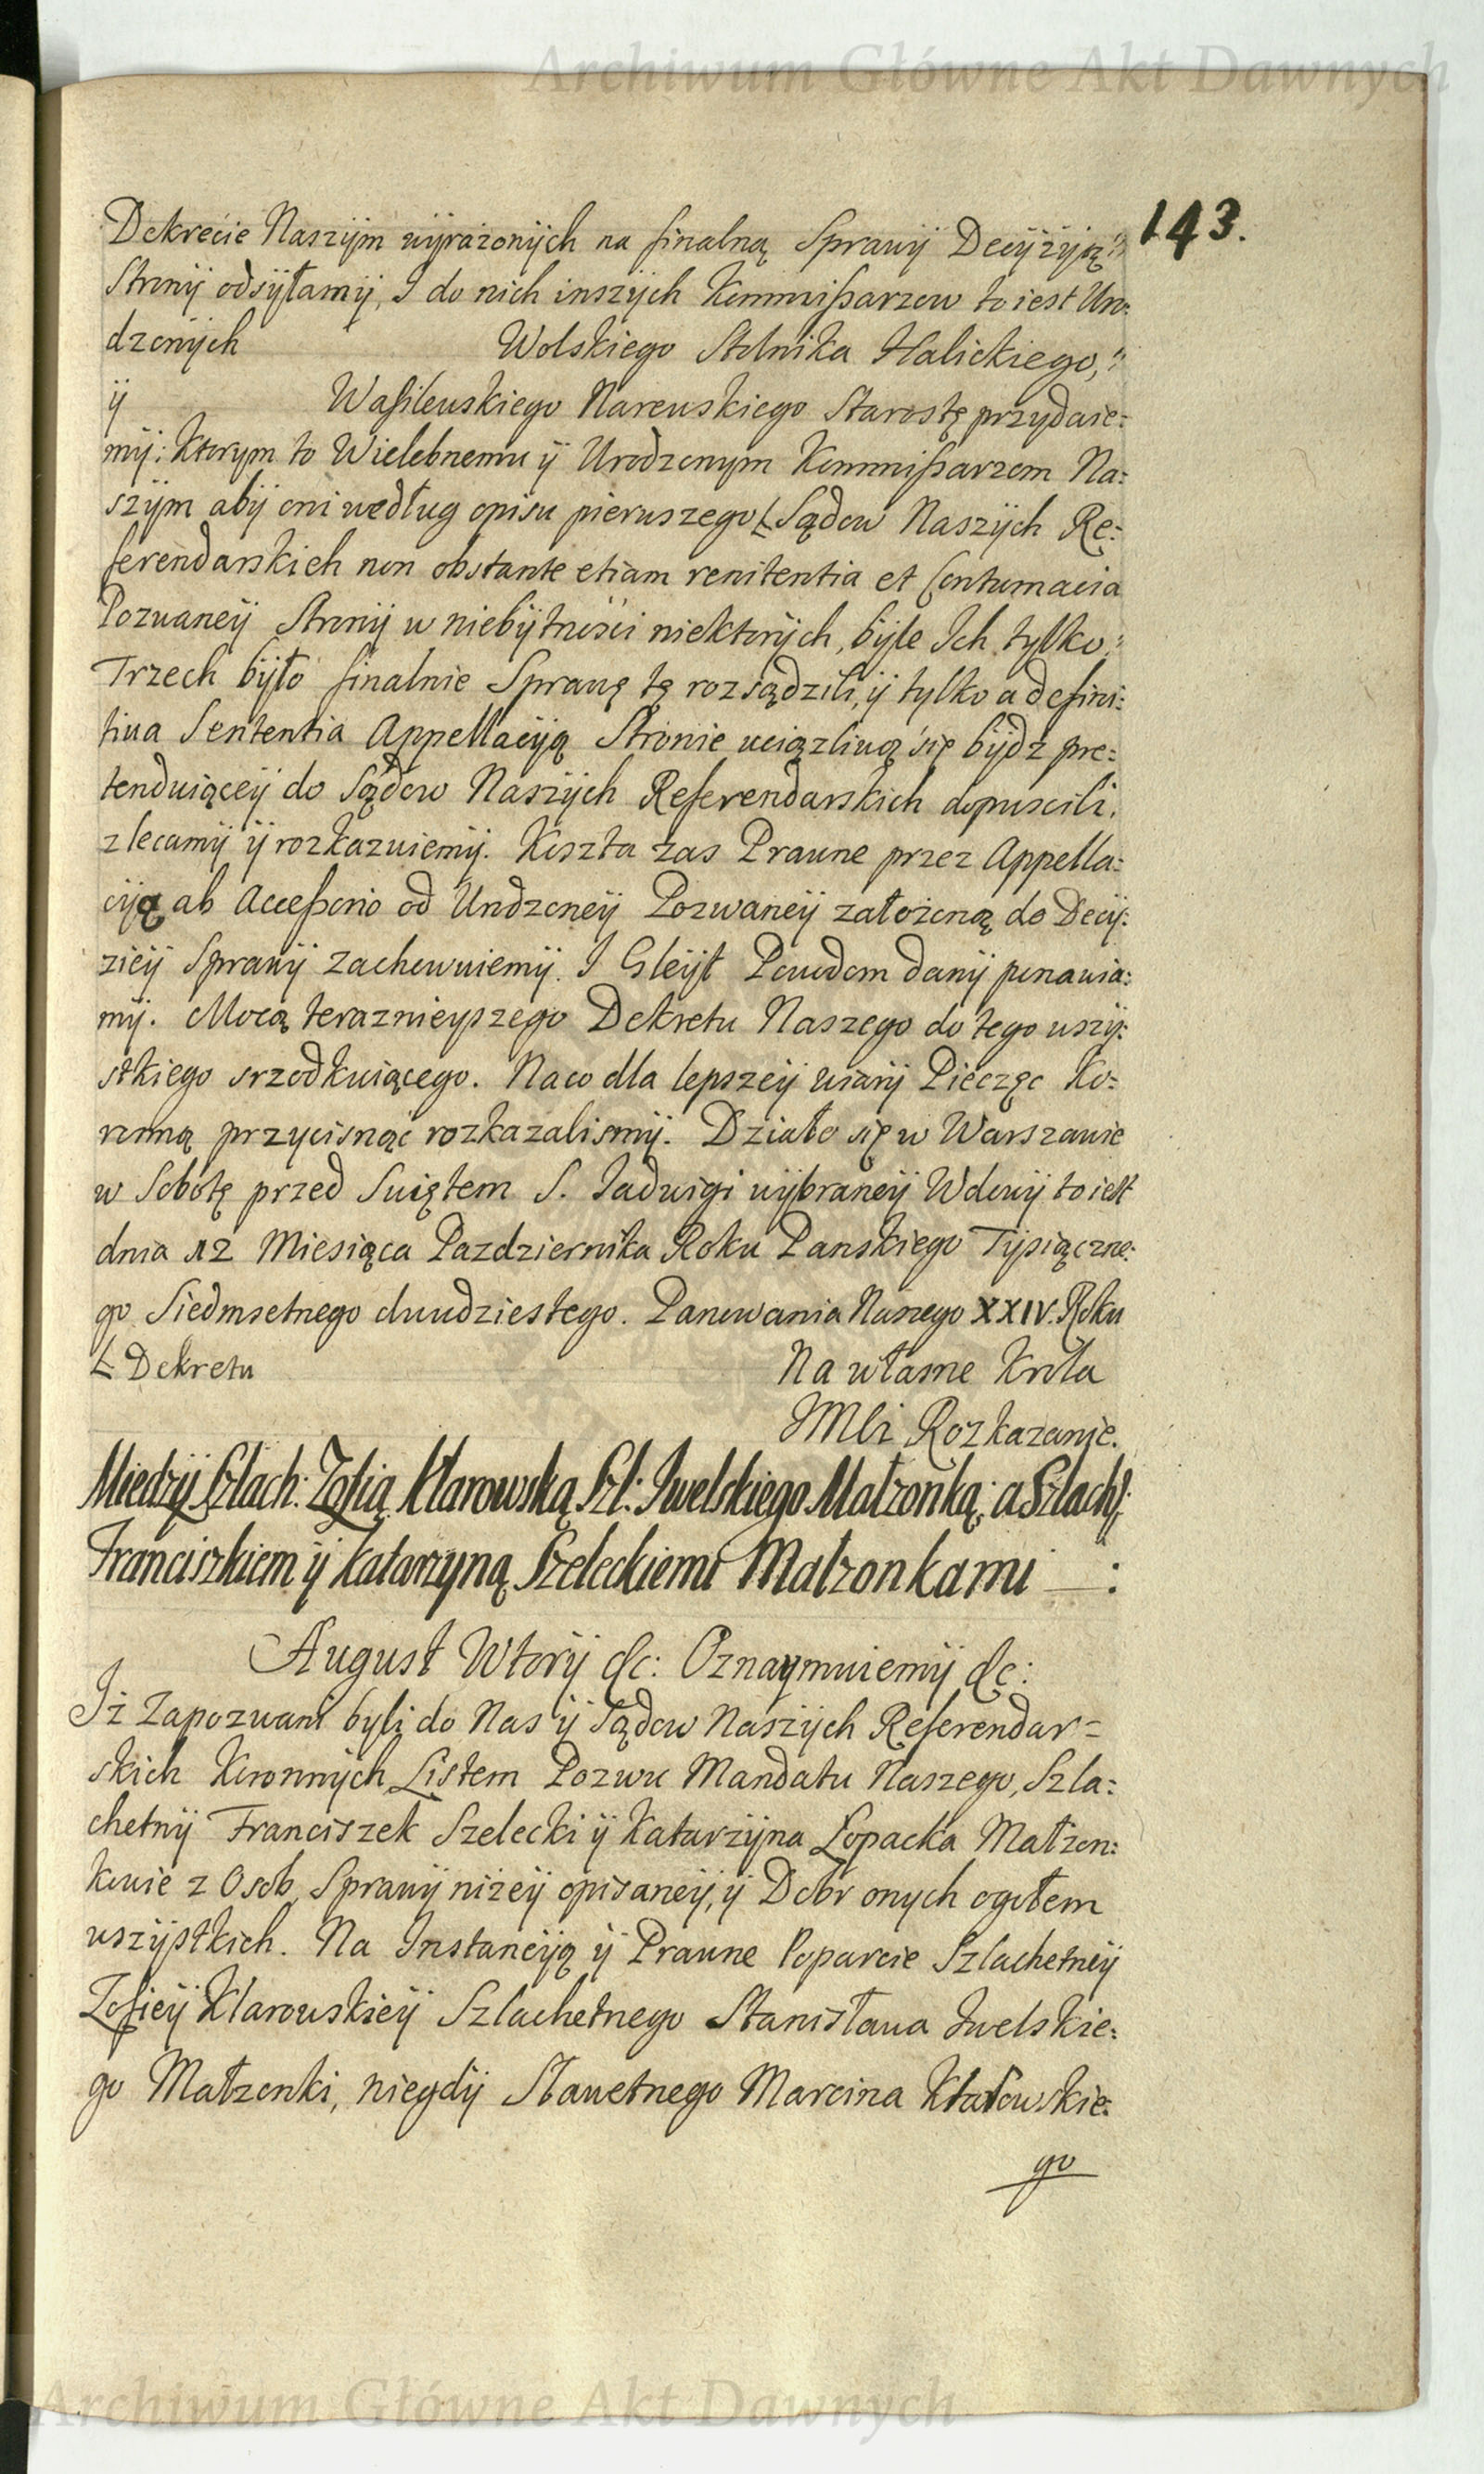 Archiwum Główne Akt Dawnych
143.
Dekrecie Naszÿm wÿrażonÿch na finalną Sprawÿ Decÿzÿią
Stronÿ odsÿłamÿ, I do nich inszÿch Kommißarzow to iest Uro:
dzonÿch Wolskiego Stolnika Halickiego,
ÿ Waßilewskiego Narewskiego Starostę przydaie:
mÿ: Ktorym to Wielebnemu ÿ Urodzonym Kommißarzom Na:
szÿm abÿ oni według opisu pierwszego Ł Sądow Naszÿch Re:
ferendarskich non obstante etiam renitentia et Contumacia
Pozwaneÿ Stronÿ w niebÿtności niektorÿch, bÿle Ich tylko
Trzech bÿło finalnie Sprawę tę rozsądzili, ÿ tylko a defini:
tiva Sententia Appellacÿą Stronie uciązliwą się bÿdz pre:
tenduiąceÿ do Sądow Naszÿch Referendarskich dopuscili,
zlecamÿ ÿ rozkazuiemÿ. Koszta zas Prawne przez Appella:
cÿą ab Acceßorio od Urodzoneÿ Pozwaneÿ założoną do Decÿ:
zieÿ Sprawÿ zachowuiemÿ. I Gleÿt Powodom danÿ ponawia:
mÿ. Mocą terazniejszego Dekretu Naszego do tego wszÿ:
stkiego srzodkuiącego. Na co dla lepszeÿ wiarÿ Pieczęc Ko:
ronną przycisnąć rozkazalismÿ. Działo się w Warszawie
w Sobotę przed Swiętem S. Jadwigi wÿbraneÿ Wdowÿ to iest
dnia 12 Miesiąca Pazdziernika Roku Panskiego Tÿsiączne:
go Siedmsetnego dwudziestego. Panowania Naszego XXIV. Roku
Ł Dekretu Na własne Krola
JMCi Rozkazanie.
Miedzÿ Szlach: Zofią Kłarowską Szl: Iwelskiego Małzonką; a Szlach:
Franciszkiem ÿ Katarzyną Szeleckiemi Małzonkami :
August Wtorÿ &c: Oznaymuiemÿ &c:
Iż Zapozwani byli do Nas ÿ Sądow Naszÿch Referendar=
skich Koronnÿch Listem Pozwu Mandatu Naszego, Szla:
chetnÿ Franciszek Szelecki ÿ Katarzÿna Łopacka Małzon:
kowie z Osob, Sprawÿ niżeÿ opisaneÿ, ÿ Dobr onych ogołem
wszÿstkich. Na Instancÿą ÿ Prawne Poparcie Szlachetneÿ
Zofieÿ Kłarowskieÿ Szlachetnego Stanisława Iwelskie:
go Małzonki, niegdÿ Sławetnego Marcina Kłarowskie:
go
Archiwum Główne Akt Dawnych